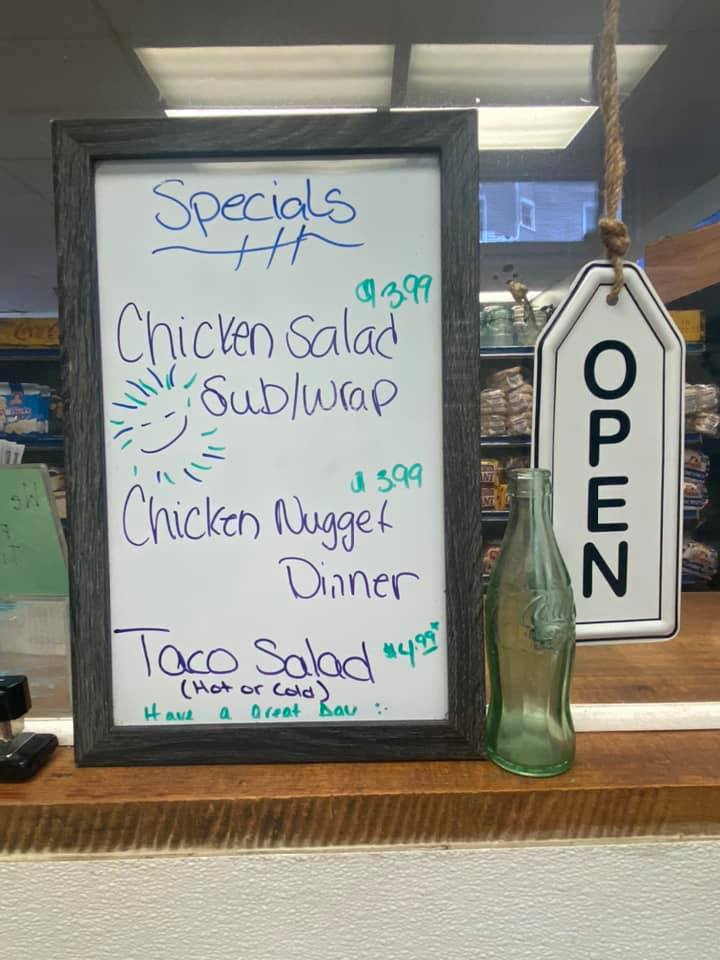 Specials
$3.99
Chicken Salad
Sub/Wrap
$3.99
Chicken Nugget
Dinner
Taco Salad $4.99
(Hot or Cold)
Have a Great Day :
OPEN